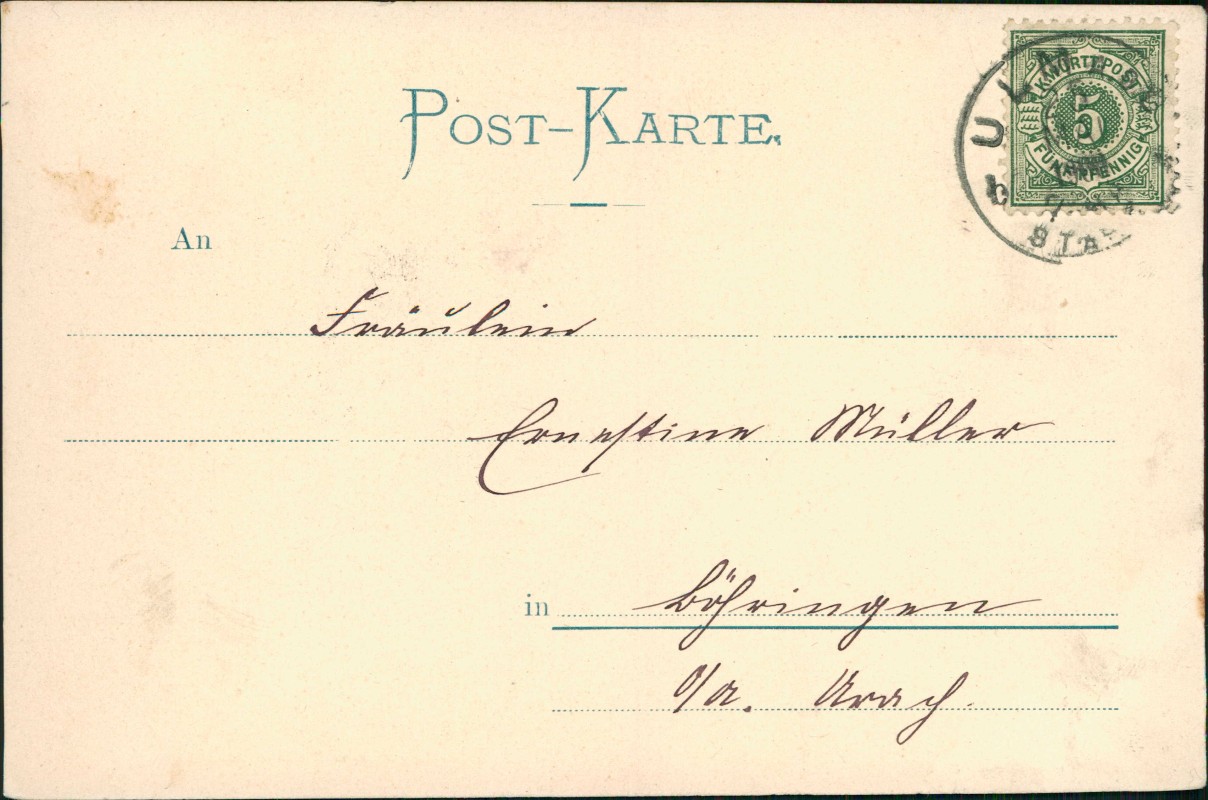 POST-KARTE.
K. WÜRTT. POST
5
FÜNF PFENNIG
ULM
An
Fräulein
Ernestine Müller
in Böhringen
O/A. Urach.